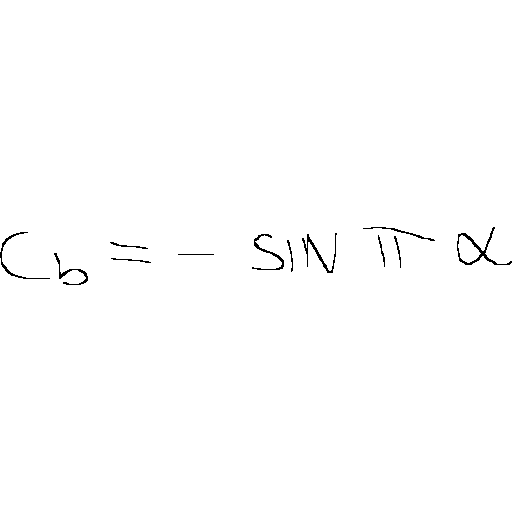 C_b = - SIN π α